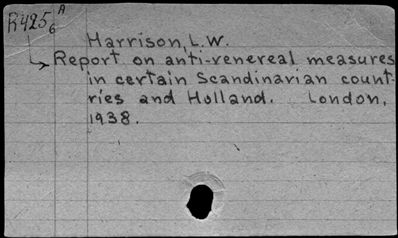 R425 A
6
Harrison, L.W.
Report on anti-venereal measures
in certain Scandinavian count-
ries and Holland. London,
1938.